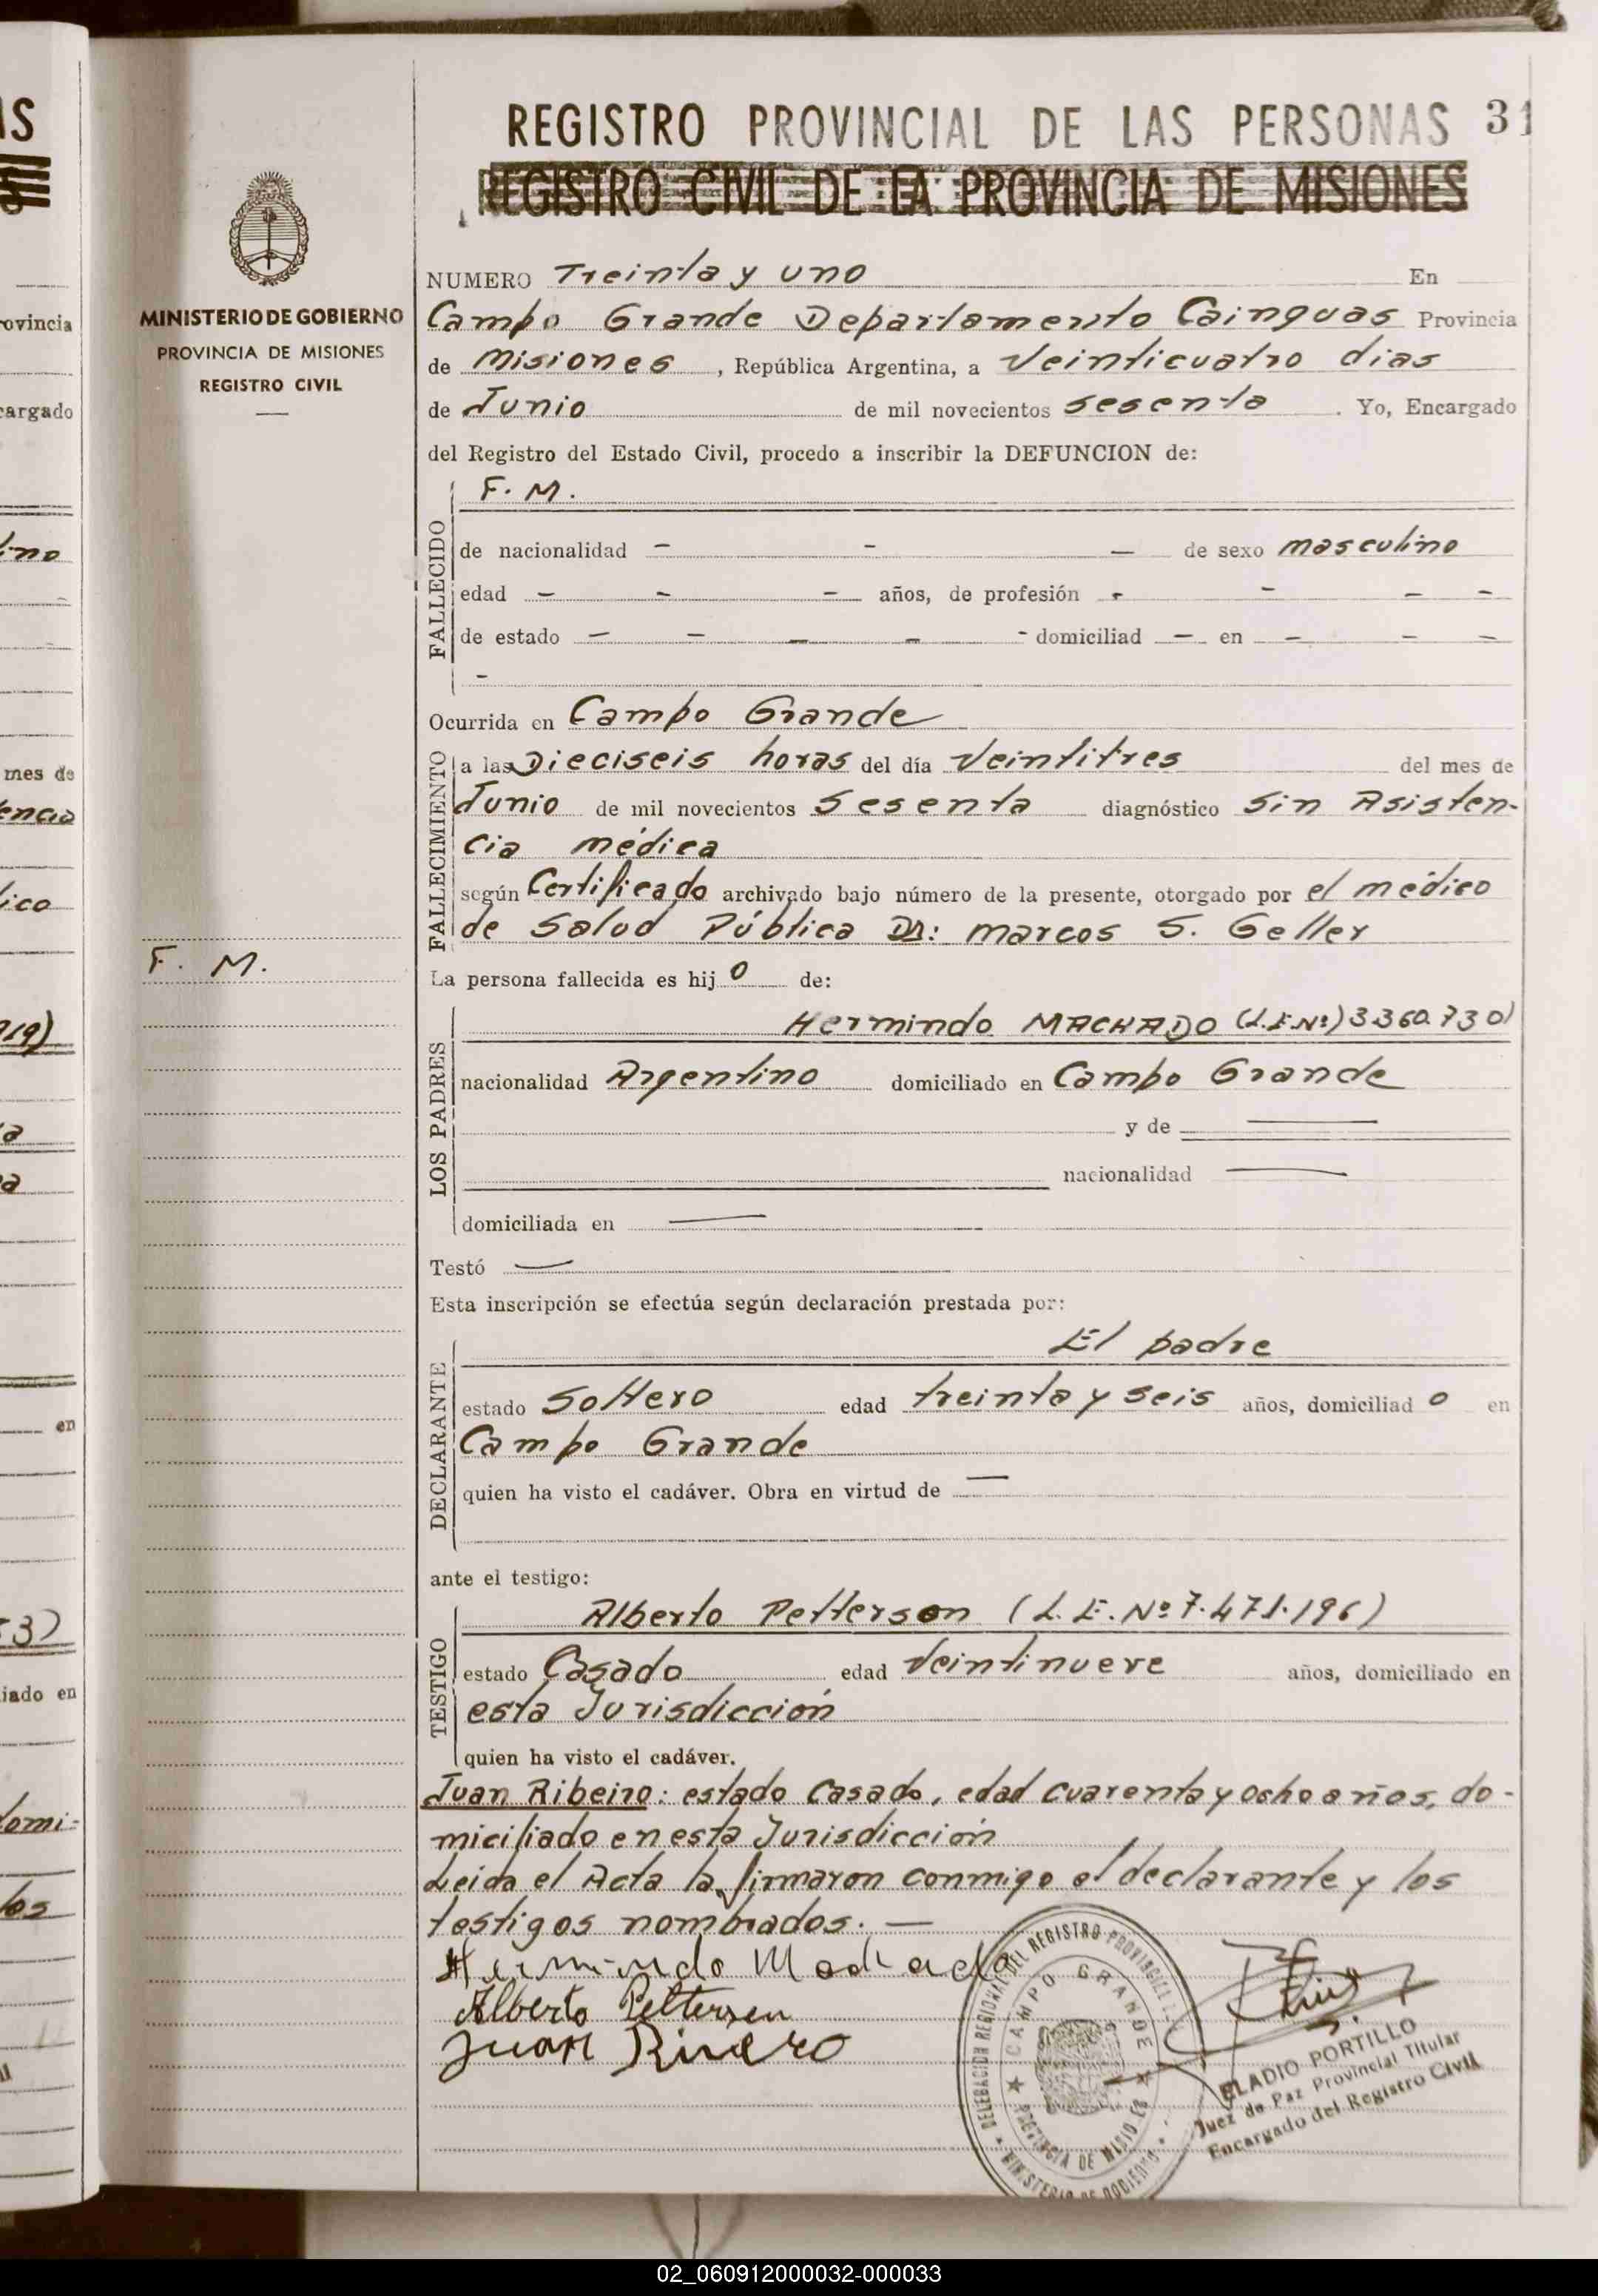 REGISTRO PROVINCIAL DE LAS PERSONAS 31
REGISTRO CIVIL DE LA PROVINCIA DE MISIONES
MINISTERIO DE GOBIERNO
PROVINCIA DE MISIONES
REGISTRO CIVIL
NUMERO Treinta y uno En
Campo Grande Departamento Cainguas Provincia
de Misiones, República Argentina, a Veinticuatro dias
de Junio de mil novecientos sesenta. Yo, Encargado
del Registro del Estado Civil, procedo a inscribir la DEFUNCION de:
FALLECIDO
F. M.
de nacionalidad - - - de sexo masculino
edad - - - años, de profesión - - - -
de estado - - - - - domiciliad - en - - -
-
Ocurrida en Campo Grande
FALLECIMIENTO
a las Dieciseis horas del día Veintitres del mes de
Junio de mil novecientos Sesenta diagnóstico Sin Asisten-
cia médica
según Certificado archivado bajo número de la presente, otorgado por el médico
de Salud Pública Dr: Marcos S. Geller
F. M.
La persona fallecida es hijo de:
LOS PADRES
Hermindo MACHADO (L.E.Nº) 3.360.730)
nacionalidad Argentino domiciliado en Campo Grande
y de —
nacionalidad —
domiciliada en —
Testó —
Esta inscripción se efectúa según declaración prestada por:
DECLARANTE
El padre
estado Soltero edad treinta y seis años, domiciliado en
Campo Grande
quien ha visto el cadáver. Obra en virtud de —
ante el testigo:
TESTIGO
Alberto Petterson (L.E. Nº 7.471.196)
estado Casado, edad Veintinueve años, domiciliado en
esta Jurisdicción
quien ha visto el cadáver.
Juan Ribeiro: estado Casado, edad cuarenta y ocho años, do-
miciliado en esta Jurisdicción
Leida el Acta la firmaron conmigo el declarante y los
testigos nombrados. —
Hermindo Machado
Alberto Pettersen
Juan Rivero
DELEGACION REGIONAL DEL REGISTRO PROVINCIAL
CAMPO GRANDE
PROVINCIA DE MISIONES
MINISTERIO DE GOBIERNO
ELADIO PORTILLO
Juez de Paz Provincial Titular
Encargado del Registro Civil
02_060912000032-000033